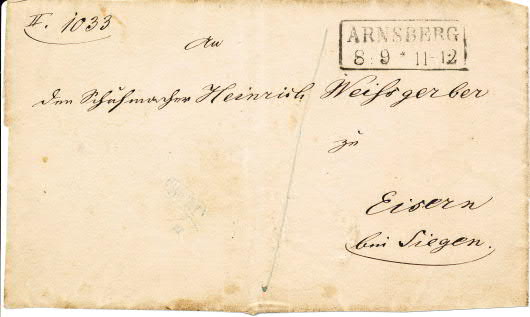 II. 1033
ARNSBERG
8 9 * 11-12
An
den Schuhmacher Heinrich Weißgerber
zu
Eisern
bei Siegen.